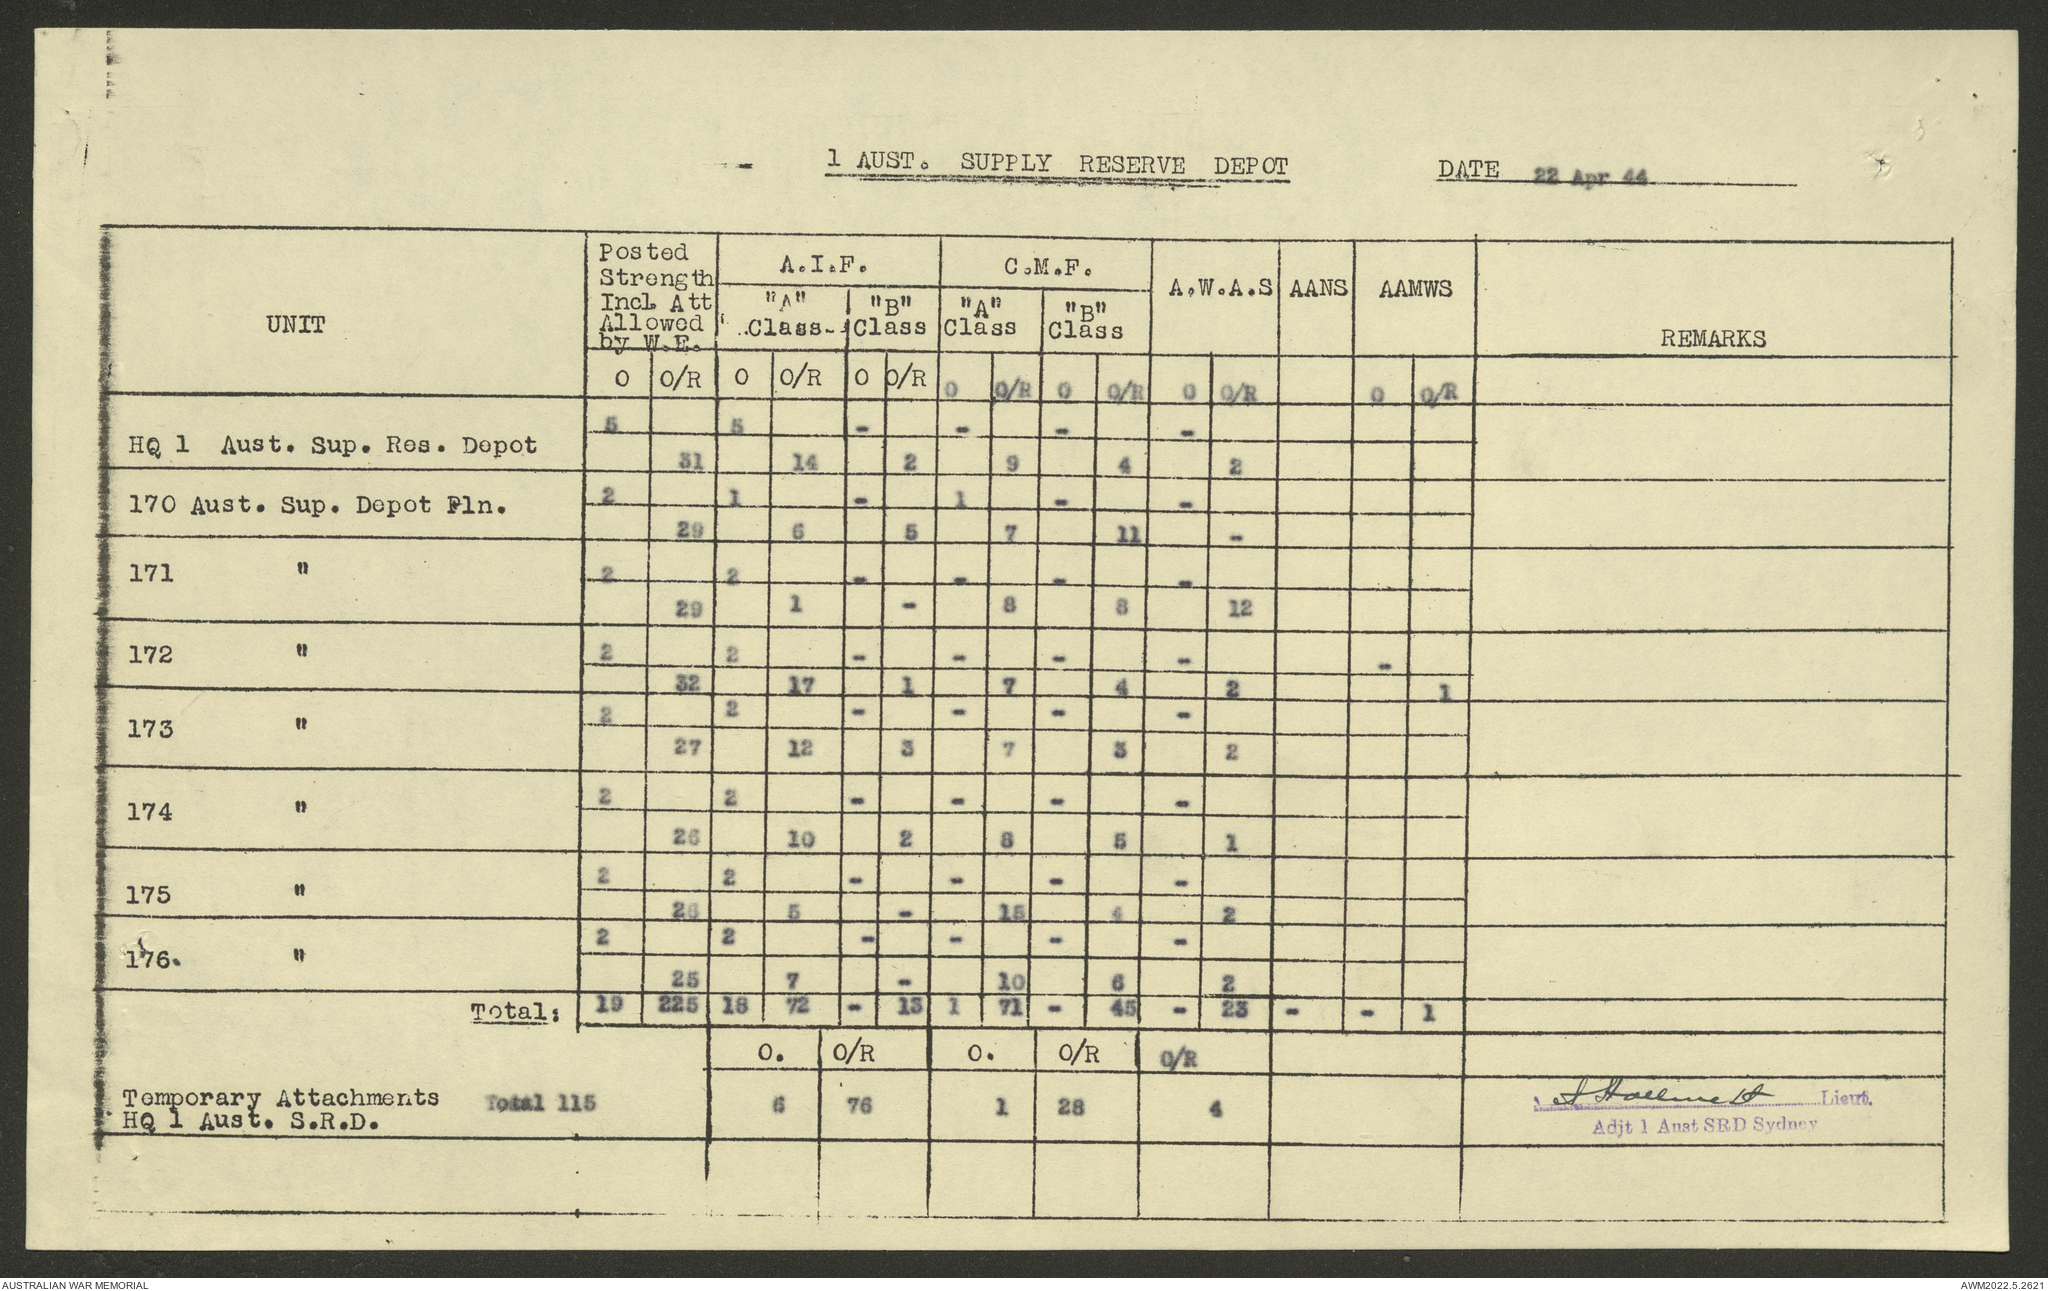 1 AUST. SUPPLY RESERVE DEPOT DATE 22 Apr 44
UNIT
Posted
Strength
Incl. Att
Allowed
by W.E.
A.I.F. C.M.F. A.W.A.S AANS AAMWS REMARKS
"A" Class "B" Class "A" Class "B" Class
O O/R O O/R O O/R O O/R O O/R O O/R O O/R
HQ 1 Aust. Sup. Res. Depot
5 5 - - - -
31 14 2 9 4 2
170 Aust. Sup. Depot Pln.
2 1 - 1 - -
29 6 5 7 11 -
171 "
2 2 - - - -
29 1 - 8 8 12
172 "
2 2 - - - - -
32 17 1 7 4 2 1
173 "
2 2 - - - -
27 12 3 7 3 2
174 "
2 2 - - - -
26 10 2 8 5 1
175 "
2 2 - - - -
26 5 - 15 4 2
176. "
2 2 - - - -
25 7 - 10 6 2
Total: 19 225 18 72 - 13 1 71 - 45 - 23 - - 1
O. O/R O. O/R O/R
Temporary Attachments Total 115 6 76 1 28 4
HQ 1 Aust. S.R.D.
Lieut.
Adjt 1 Aust SRD Sydney
AUSTRALIAN WAR MEMORIAL AWM2022.5.2621